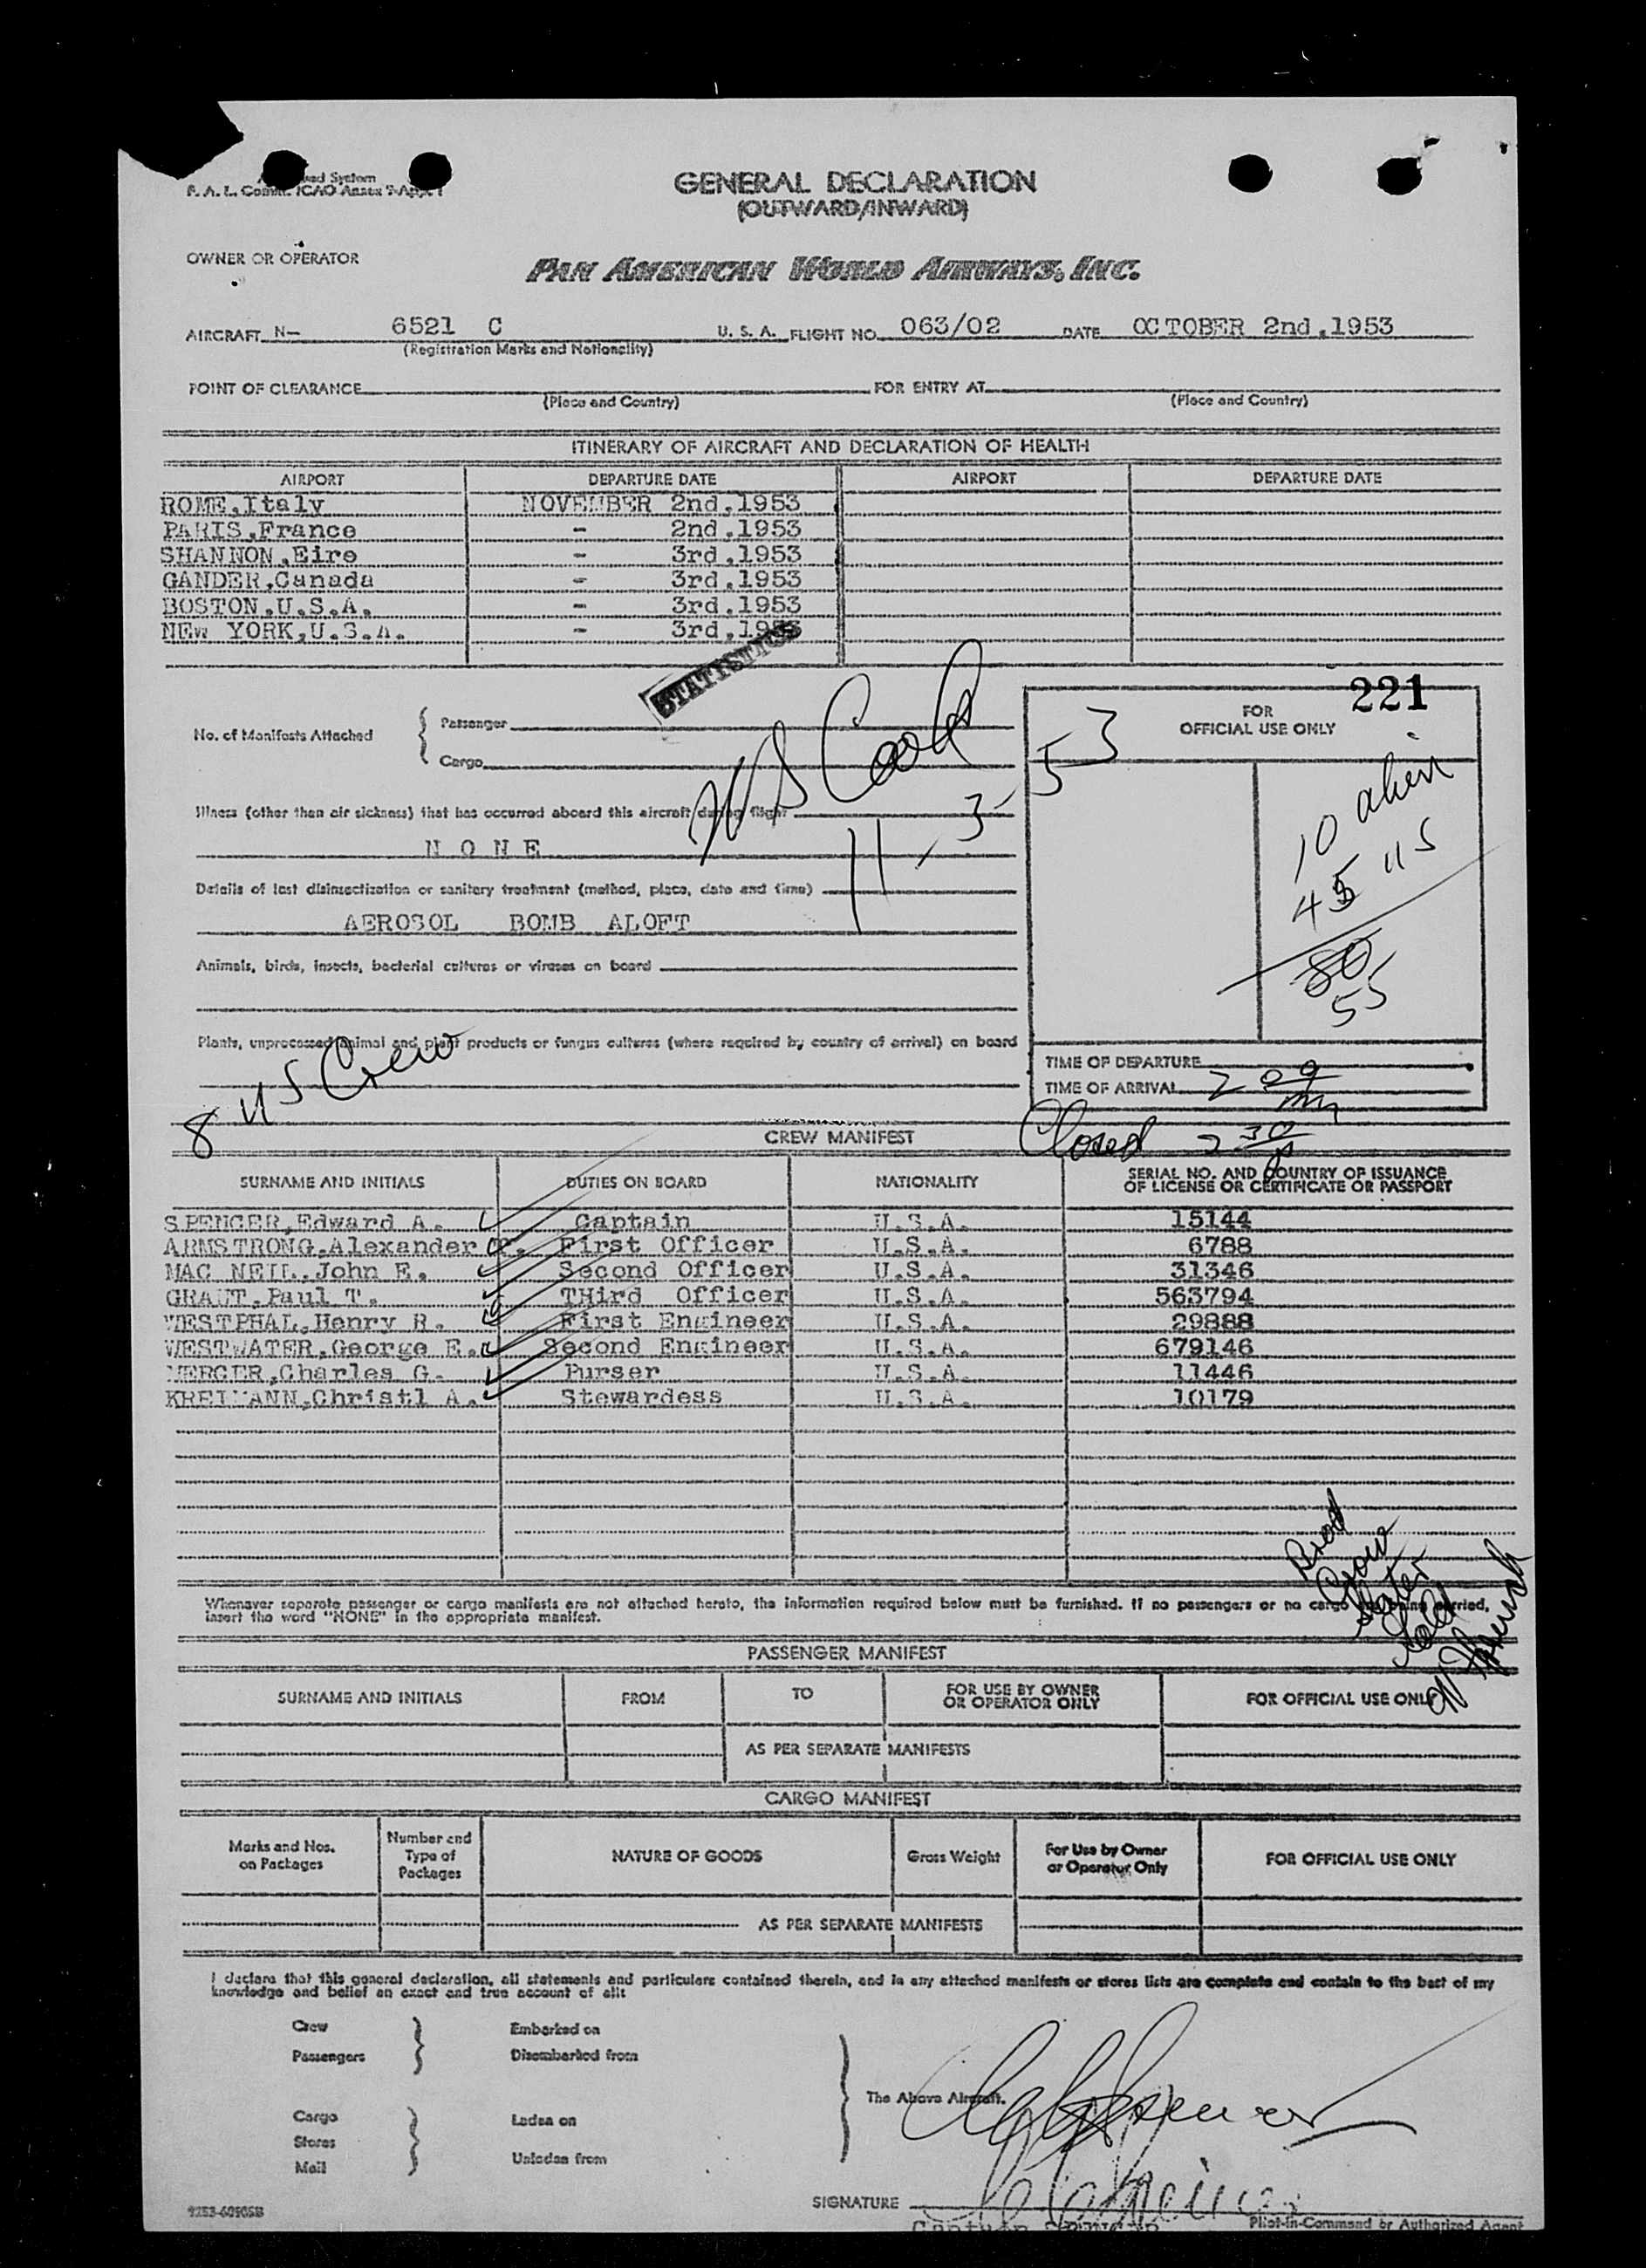 GENERAL DECLARATION
(OUTWARD/INWARD)
OWNER OR OPERATOR
PAN AMERICAN WORLD AIRWAYS, INC.
AIRCRAFT N- 6521 C U. S. A. FLIGHT NO. 063/02 DATE OCTOBER 2nd,1953
(Registration Marks and Nationality)
POINT OF CLEARANCE FOR ENTRY AT
(Place and Country) (Place and Country)
ITINERARY OF AIRCRAFT AND DECLARATION OF HEALTH
AIRPORT DEPARTURE DATE AIRPORT DEPARTURE DATE
ROME,Italy NOVEMBER 2nd,1953
PARIS,France - 2nd,1953
SHANNON,Eire - 3rd,1953
GANDER,Canada - 3rd,1953
BOSTON,U.S.A. - 3rd,1953
NEW YORK,U.S.A. - 3rd,1953
STATISTICS
221
FOR
OFFICIAL USE ONLY
No. of Manifests Attached
Passenger
Cargo
11-3-53
10 alien
45 US
80
55
Illness (other than air sickness) that has occurred aboard this aircraft during flight
N O N E
Details of last disinsectization or sanitary treatment (method, place, date and time)
AEROSOL BOMB ALOFT
Animals, birds, insects, bacterial cultures or viruses on board
Plants, unprocessed animal and plant products or fungus cultures (where required by country of arrival) on board
8 US Crew
TIME OF DEPARTURE
TIME OF ARRIVAL 2 00
Closed 2 30
CREW MANIFEST
SURNAME AND INITIALS DUTIES ON BOARD NATIONALITY SERIAL NO. AND COUNTRY OF ISSUANCE
OF LICENSE OR CERTIFICATE OR PASSPORT
SPENCER,Edward A. Captain U.S.A. 15144
ARMSTRONG,Alexander First Officer U.S.A. 6788
MAC NEIL,John E. Second Officer U.S.A. 31346
GRAUT,Paul T. THird Officer U.S.A. 563794
WESTPHAL,Henry R. First Engineer U.S.A. 29888
WESTWATER,George E. Second Engineer U.S.A. 679146
MERGER,Charles G. Purser U.S.A. 11446
KREIMANN,Christl A. Stewardess U.S.A. 10179
Whenever separate passenger or cargo manifests are not attached hereto, the information required below must be furnished. If no passengers or no cargo are being carried,
insert the word "NONE" in the appropriate manifest.
PASSENGER MANIFEST
SURNAME AND INITIALS FROM TO FOR USE BY OWNER
OR OPERATOR ONLY FOR OFFICIAL USE ONLY
AS PER SEPARATE MANIFESTS
CARGO MANIFEST
Marks and Nos.
on Packages
Number and
Type of
Packages
NATURE OF GOODS
Gross Weight
For Use by Owner
or Operator Only
FOR OFFICIAL USE ONLY
AS PER SEPARATE MANIFESTS
I declare that this general declaration, all statements and particulars contained therein, and in any attached manifests or stores lists are complete and contain to the best of my
knowledge and belief an exact and true account of all:
Crew
Passengers
Embarked on
Disembarked from
The Above Aircraft.
Cargo
Stores
Mail
Laden on
Unladen from
SIGNATURE
Captain SPENCER
Pilot-in-Command or Authorized Agent